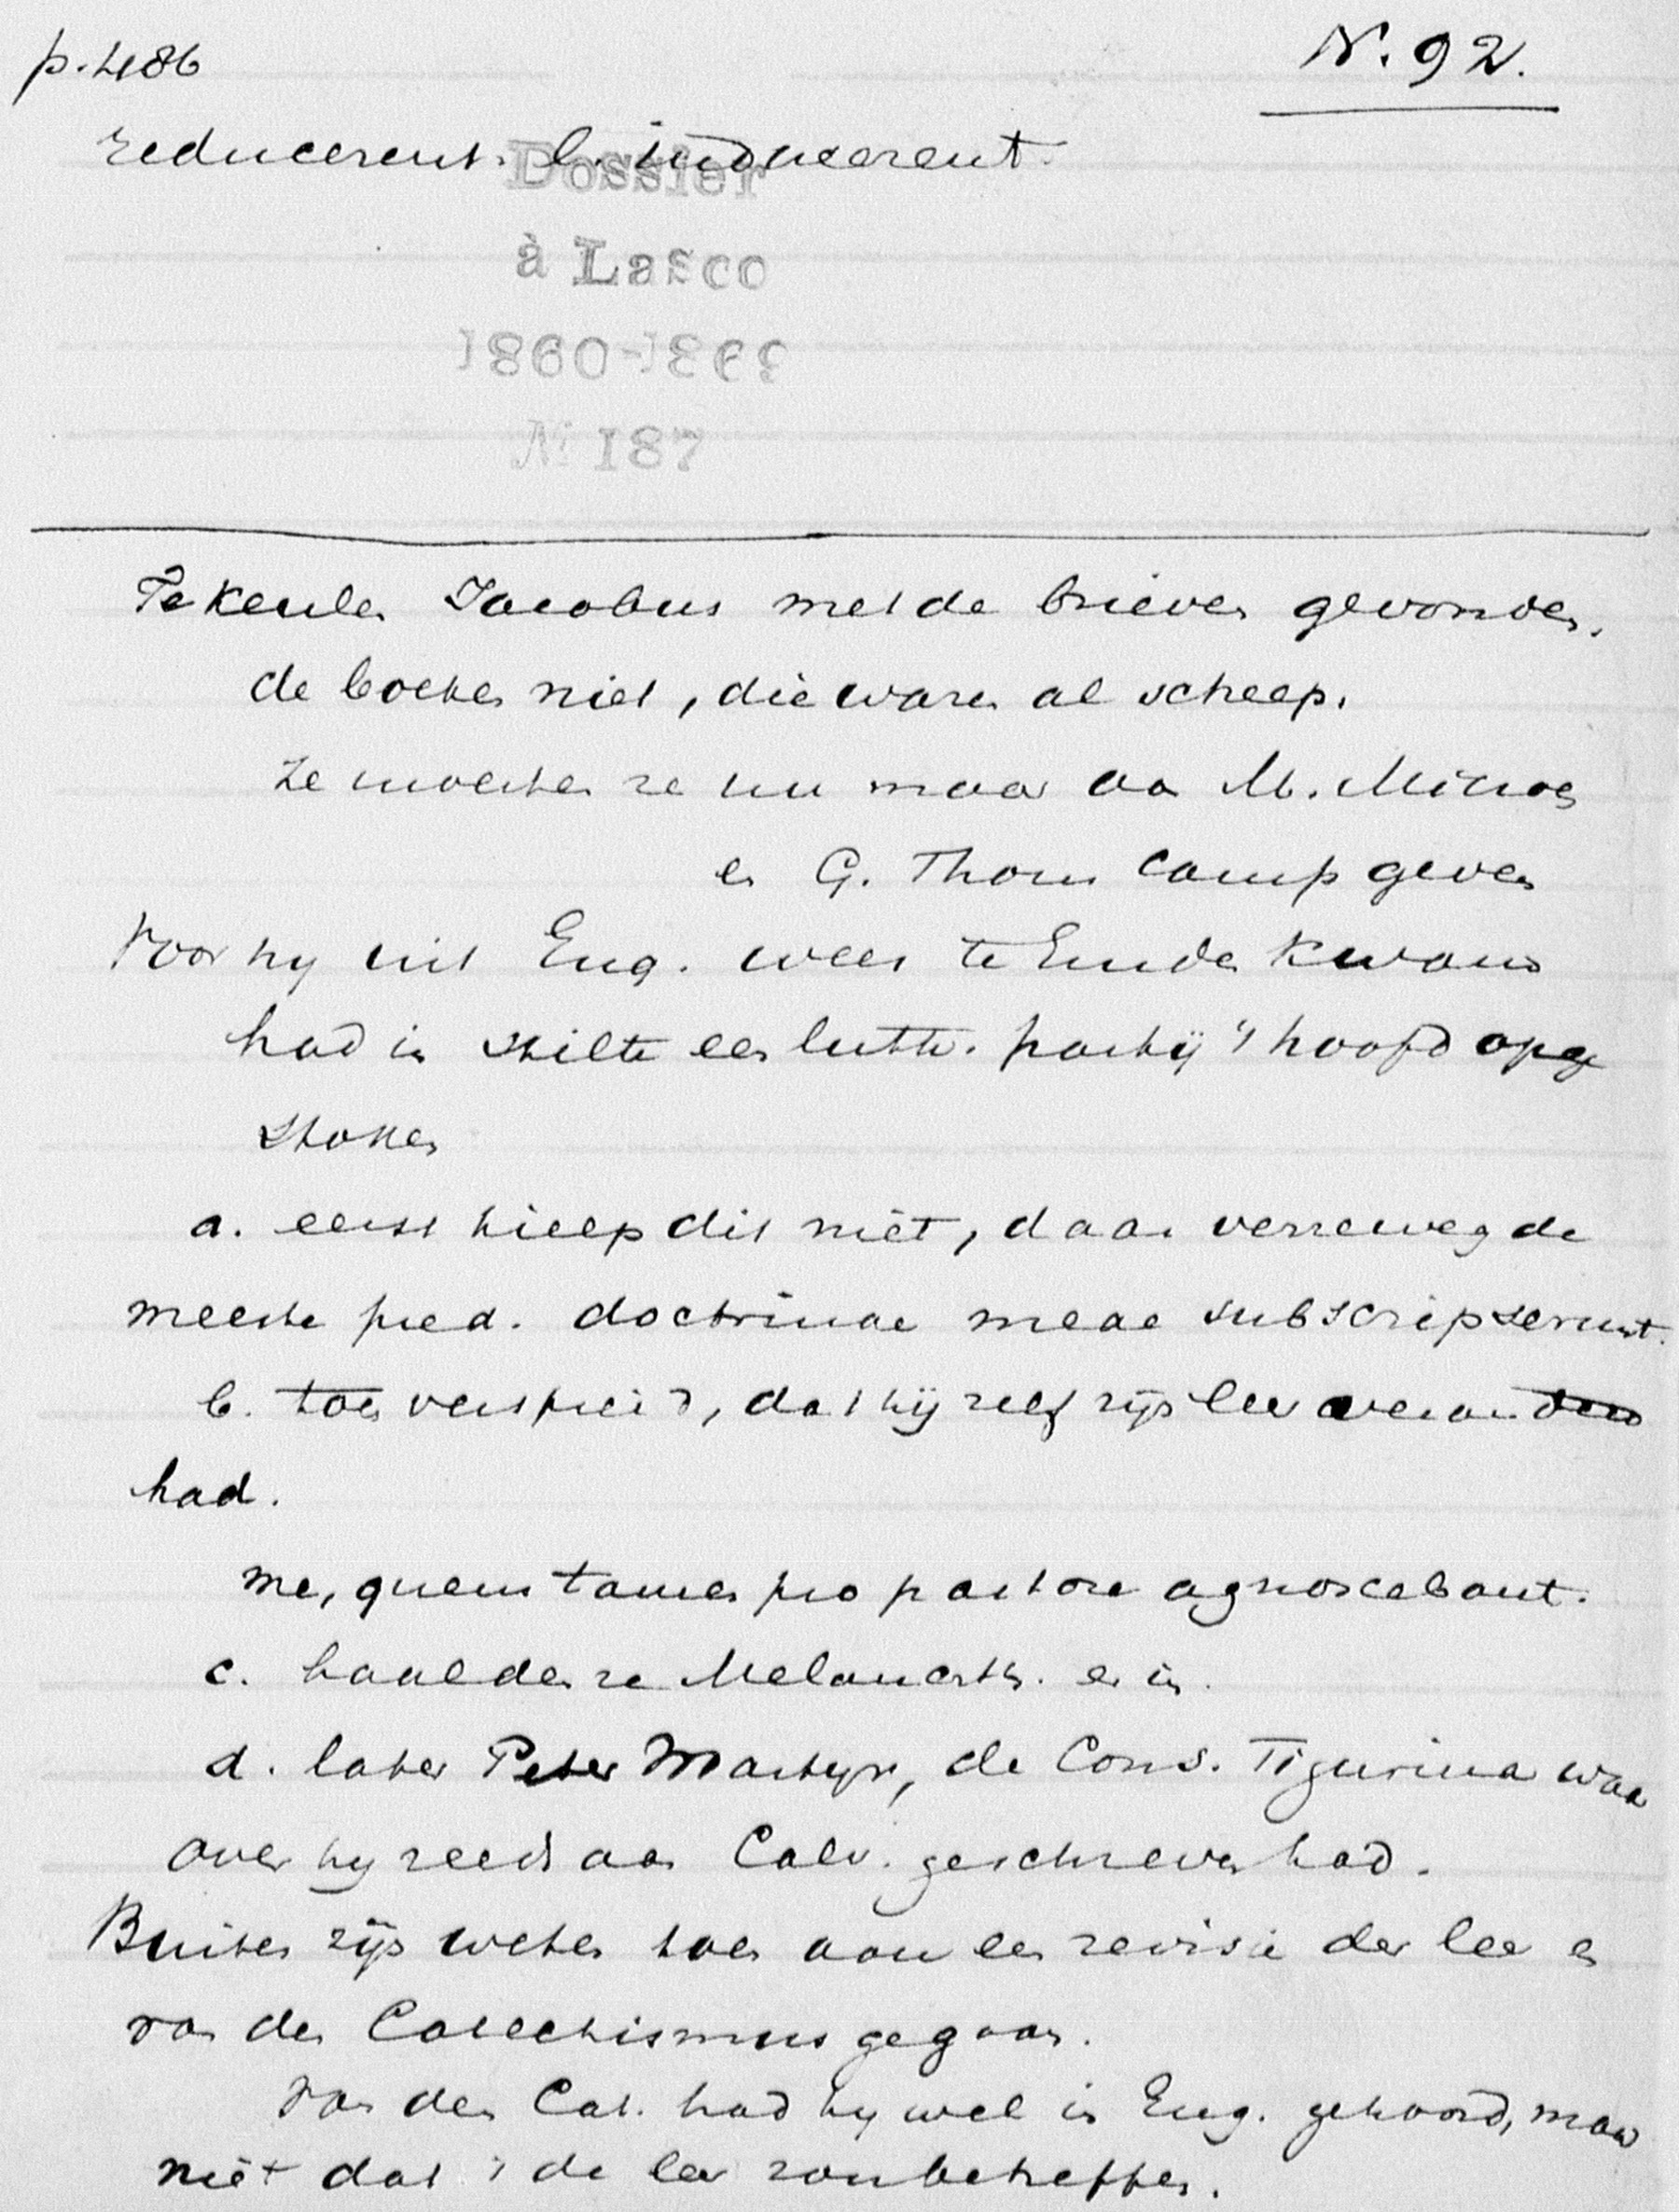 p. 486
N. 92.
reducerent. l. inducerent.
Dossier
à Lasco
1860-1869
No 187
Te Keulen Jacobus met de brieven gevonden.
de boeken niet, die waren al scheep.
Ze moesten ze nu maar aan M.
en G. Thom Camp geven
Voor hy uit Eng. weer te Emden kwam
had in stilte een luth. partij 't hoofd opge
stoken
a. eerst hielp dit niet, daar verreweg de
meeste pred. doctrinae meae subscripserunt.
b. toen verspreid, dat hij zelf zijn leer veranderd
had.
me, quem tamen pro pastore agnoscebant.
c. haalden ze Melanchth. er in.
d. later Peter Martyr, de Cons. Tigurina waar
over hy reeds aan Calv. geschreven had.
Buiten zijn weten toen aan een revisie der leer en
van den Catechismus gegaan.
Van den Cat. had hy wel in Eng. gehoord, maar
niet dat 't de leer zou betreffen.